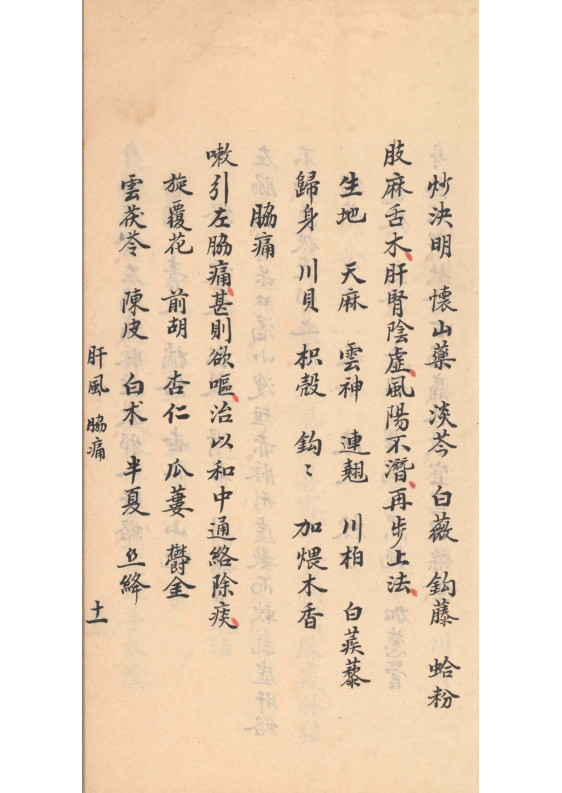 炒決明 懷山藥 淡芩 白薇 鈎藤 蛤粉
肢麻舌木、肝腎陰虛、風陽不潛、再步上法、
生地 天麻 雲神 連翹 川柏 白蒺藜
歸身 川貝 枳殼 鈎〻 加煨木香
脇痛
嗽引左脇痛、甚則欲嘔、治以和中通絡除痰、
旋覆花 前胡 杏仁 瓜蔞 鬱金
雲茯苓 陳皮 白术 半夏 絳
肝風 脇痛
十一